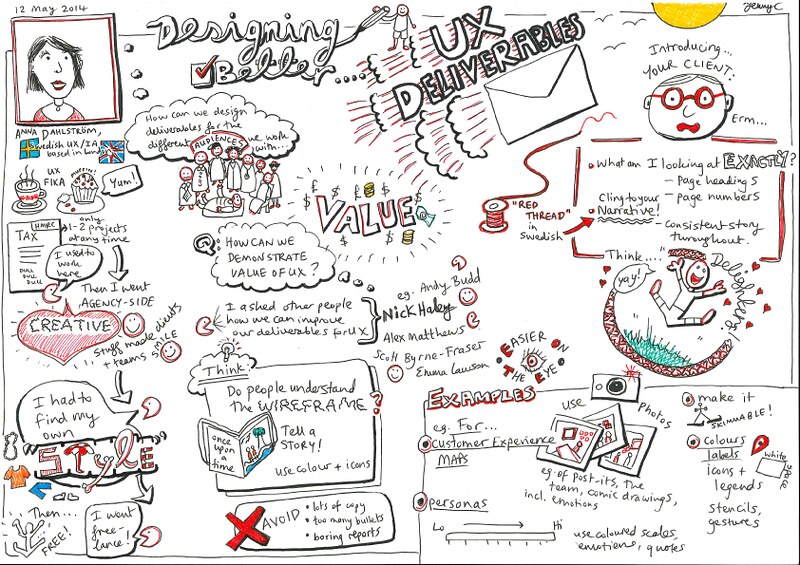 12 May 2014
Designing
Better....
UX
DELIVERABLES
JennyC
ANNA DAHLSTRÖM,
Swedish UX/IA
based in London
UX
FIKA
Yum!
HMRC
TAX
DULL
DULL
DULL
only
1-2 projects
at any time
I used to
work
here
Then I went
AGENCY-SIDE
CREATIVE
stuff made clients
+ teams SMILE
I had to
find my
own
STYLE
Then...
FREE!
I went
free-
lance!
How can we design
deliverables for the
different AUDIENCES we work
with...
VALUE
HOW CAN WE
DEMONSTRATE
VALUE OF UX?
I asked other people
how we can improve
our deliverables for UX
eg. Andy Budd
Nick Haley
Alex Matthews
Scott Byrne-Fraser
Emma Lawson
Think:
Do people understand
the WIREFRAME?
once
upon
a
time
Tell a
STORY!
use colour + icons
AVOID
• lots of copy
• too many bullets
• boring reports
Introducing...
YOUR CLIENT:
Erm...
• What am I looking at EXACTLY?
– page headings
– page numbers
"RED
THREAD"
in
Swedish
Cling to your
• Narrative!
– consistent story
throughout.
Think...."
Delighters!
yay!
EASIER ON
THE EYE
EXAMPLES
eg. For...
customer Experience
MAPS
use
Photos
eg. of post-its, the
team, comic drawings,
incl. emotions
personas
Lo
Hi
use coloured scales,
emotions, quotes
make it
SKIMMABLE!
colours
labels
icons +
legends
white
space
stencils,
gestures